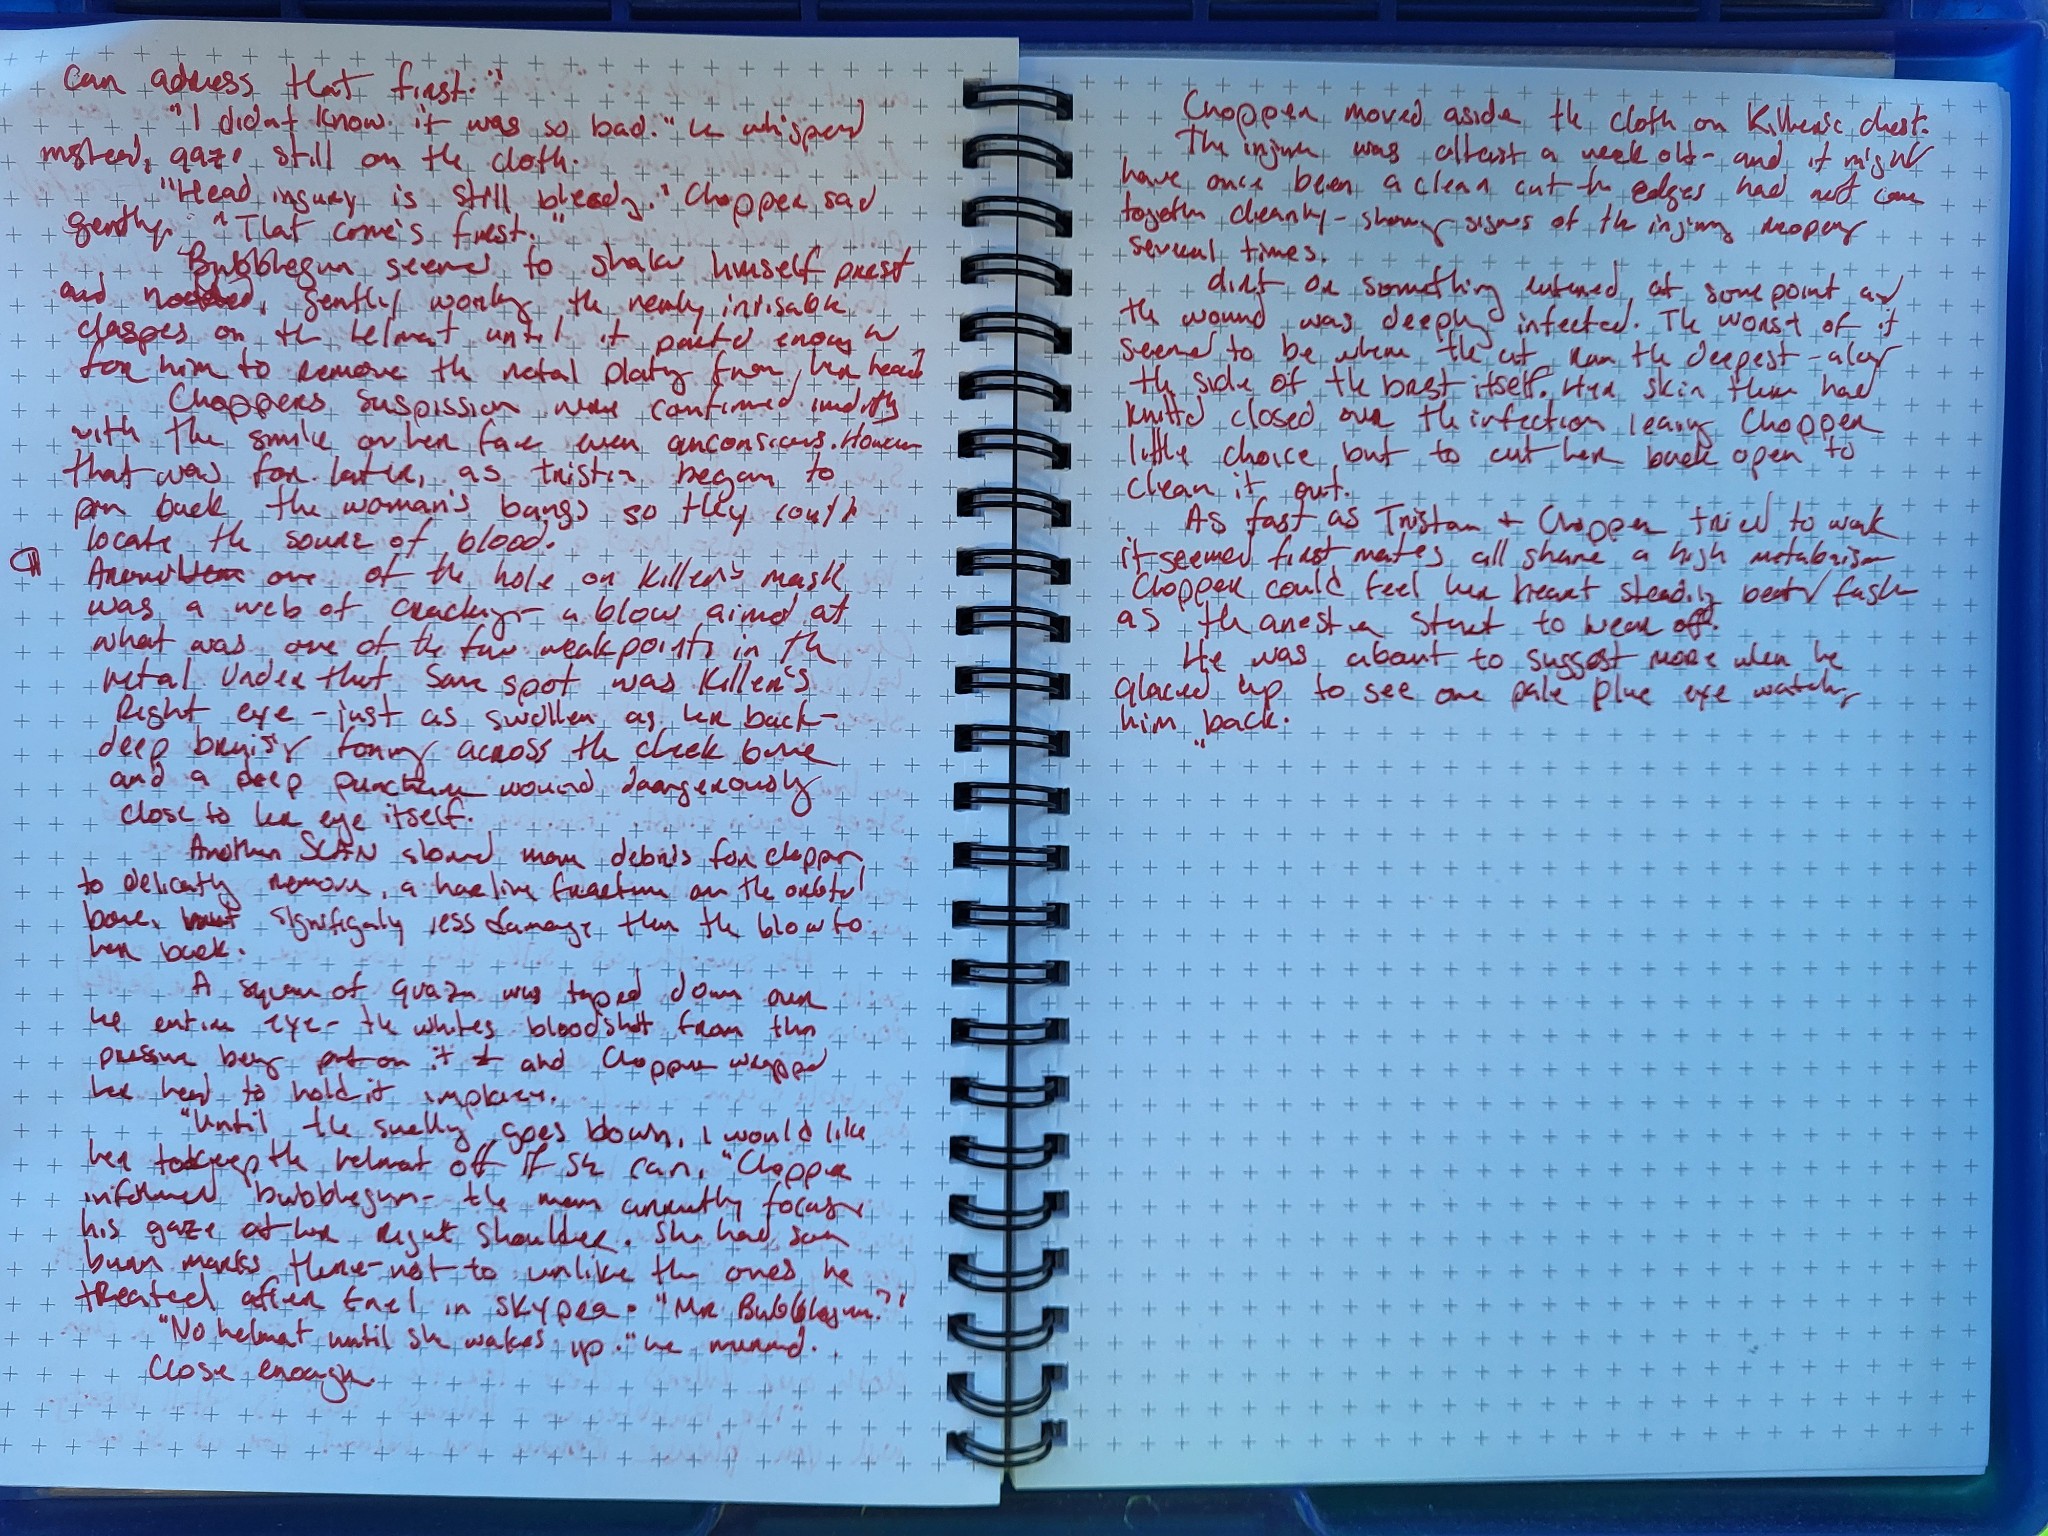 can adress that first."
"I didnt know it was so bad." he whisperd
instead, gaze still on the cloth.
"Head injury is still bleedy." Chopper said
gently. "That come's first."
Bubblegum seemed to shake himself
and nodded, gently workng the nearly invisable
claspes on the helmet until it parted enough
for him to remove the metal plating from her head
Choppers suspission were confirmed
with the smile on her face even unconscious. However
that was for later, as tristin began to
pin back the woman's bangs so they could
locate the sourse of blood.
¶ one of the hole on Killer's mask
was a web of crackings - a blow aimed at
what was one of the few weakpoints in the
metal Under that same spot was Killer's
Right eye - just as swollen as her back -
deep bruisng formng across the cheek bone
and a deep puncture wound daangerously
close to her eye itself.
Another SCAN showed more debris for chopper
to delicatly remove, a hairline fracture on the orbital
bone, significanly less damage than the blow to
her back.
A square of guaze was taped down over
the entire eye - the whites bloodshot from the
pressure being put on it and Chopper wrapped
her head to hold it inplace.
"Until the swellng goes down, I would like
her to keep the helmat off if she can." Chopper
informed bubblegum - the man currently focusng
his gaze at her right shoulder. She had som
burn marks there - not to unlike the ones he
treated after Enel in skypea. "Mr Bubblegum?"
"No helmat until she wakes up." he murmed.
Close enough.
Chopper moved aside the cloth on Killer's chest.
The injury was atleast a week old - and it might
have once been a clean cut the edges had not come
together cleanly - showng signes of the injury reopeng
several times.
dirt or something entered at some point and
the wound was deeply infected. The worst of it
seemed to be where the cut ran the deepest - along
the side of the brest itself. Her skin there had
knitted closed over the infection leaving Chopper
little choice but to cut her back open to
clean it out.
As fast as Tristan + Chopper tried to work
it seemed first mates all share a high metabolism
Chopper could feel her heart steadily beatng faster
as the start to wear off.
He was about to suggest more when he
glaced up to see one pale plue eye watchng
him back.